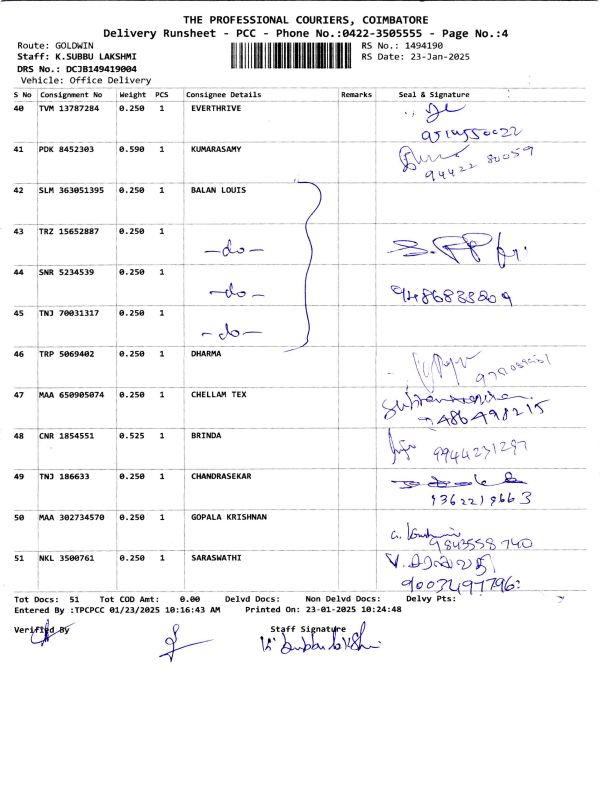 THE PROFESSIONAL COURIERS, COIMBATORE
Delivery Runsheet - PCC - Phone No.:0422-3505555 - Page No.:4
Route: GOLDWIN RS No.: 1494190
Staff: K.SUBBU LAKSHMI RS Date: 23-Jan-2025
DRS No.: DCJB149419004
Vehicle: Office Delivery
S No Consignment No Weight PCS Consignee Details Remarks Seal & Signature
40 TVM 13787284 0.250 1 EVERTHRIVE
41 PDK 8452303 0.590 1 KUMARASAMY 94422 80059
42 SLM 363051395 0.250 1 BALAN LOUIS
43 TRZ 15652887 0.250 1
-do-
44 SNR 5234539 0.250 1
-do- 9486833809
45 TNJ 70031317 0.250 1
-do-
46 TRP 5069402 0.250 1 DHARMA
47 MAA 650905074 0.250 1 CHELLAM TEX
48 CNR 1854551 0.525 1 BRINDA 9944231297
49 TNJ 186633 0.250 1 CHANDRASEKAR
9362219663
50 MAA 302734570 0.250 1 GOPALA KRISHNAN
9843558740
51 NKL 3500761 0.250 1 SARASWATHI V. சரஸ்வதி
9003497796
Tot Docs: 51 Tot COD Amt: 0.00 Delvd Docs: Non Delvd Docs: Delvy Pts:
Entered By :TPCPCC 01/23/2025 10:16:43 AM Printed On: 23-01-2025 10:24:48
Verified By Staff Signature
K. Subbulakshmi